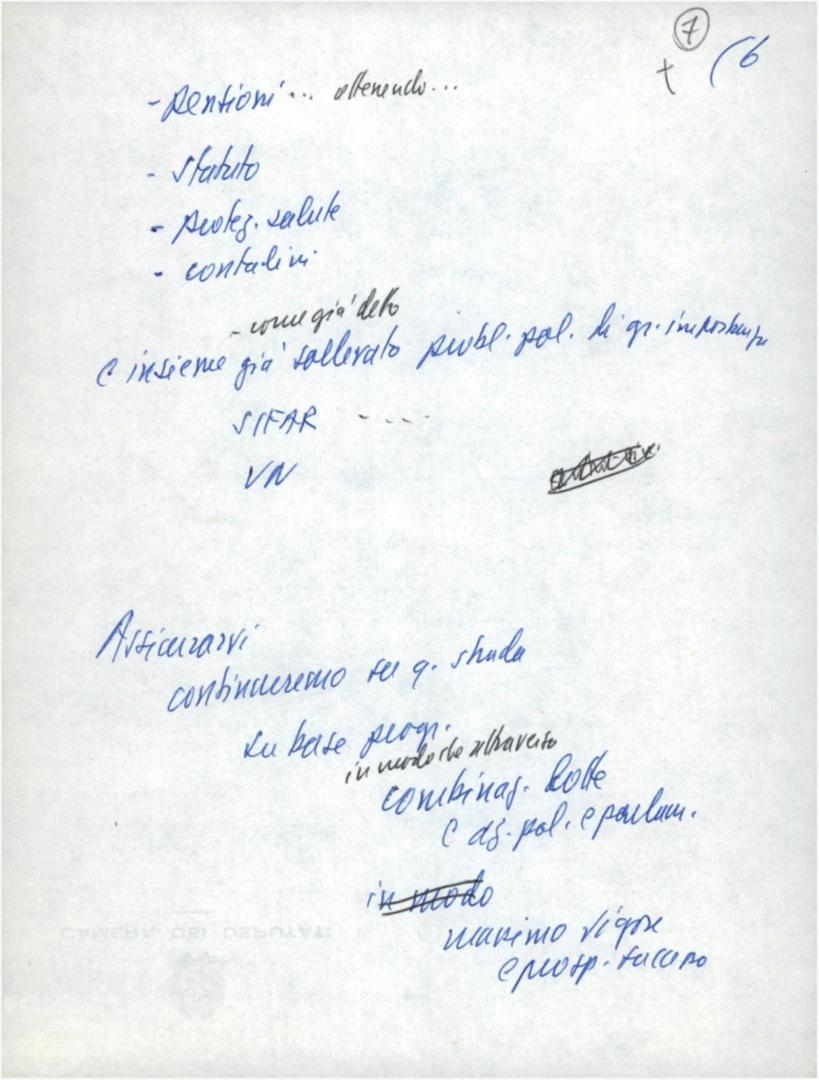 7
(6
- pensioni ... ottenendo...
- statuto
- proteg. salute
- contadini
- come già detto
e insieme già sollevato probl. pol. di gr. importanza
SIFAR - - - -
VN
Assicurarvi
continueremo su q. strada
su base progr.
in modo che attraverso
combinaz. lotte
e az. pol. e parlam.
in modo
massimo vigore
e prosp. successo
CAMERA DEI DEPUTATI